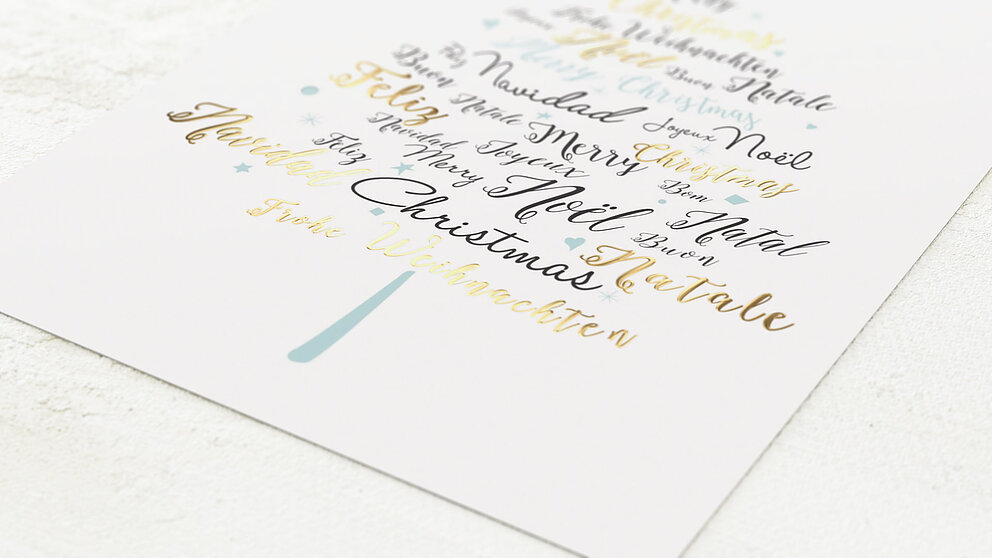 Christmas
Frohe Weihnachten
Joyeux Noël Buon Natale
Merry Christmas
Feliz Navidad Joyeux Noël
Buon Natale Merry Christmas
Feliz Navidad Joyeux Bom Natal
Feliz Merry Noël Buon Natale
Navidad Christmas
Frohe Weihnachten